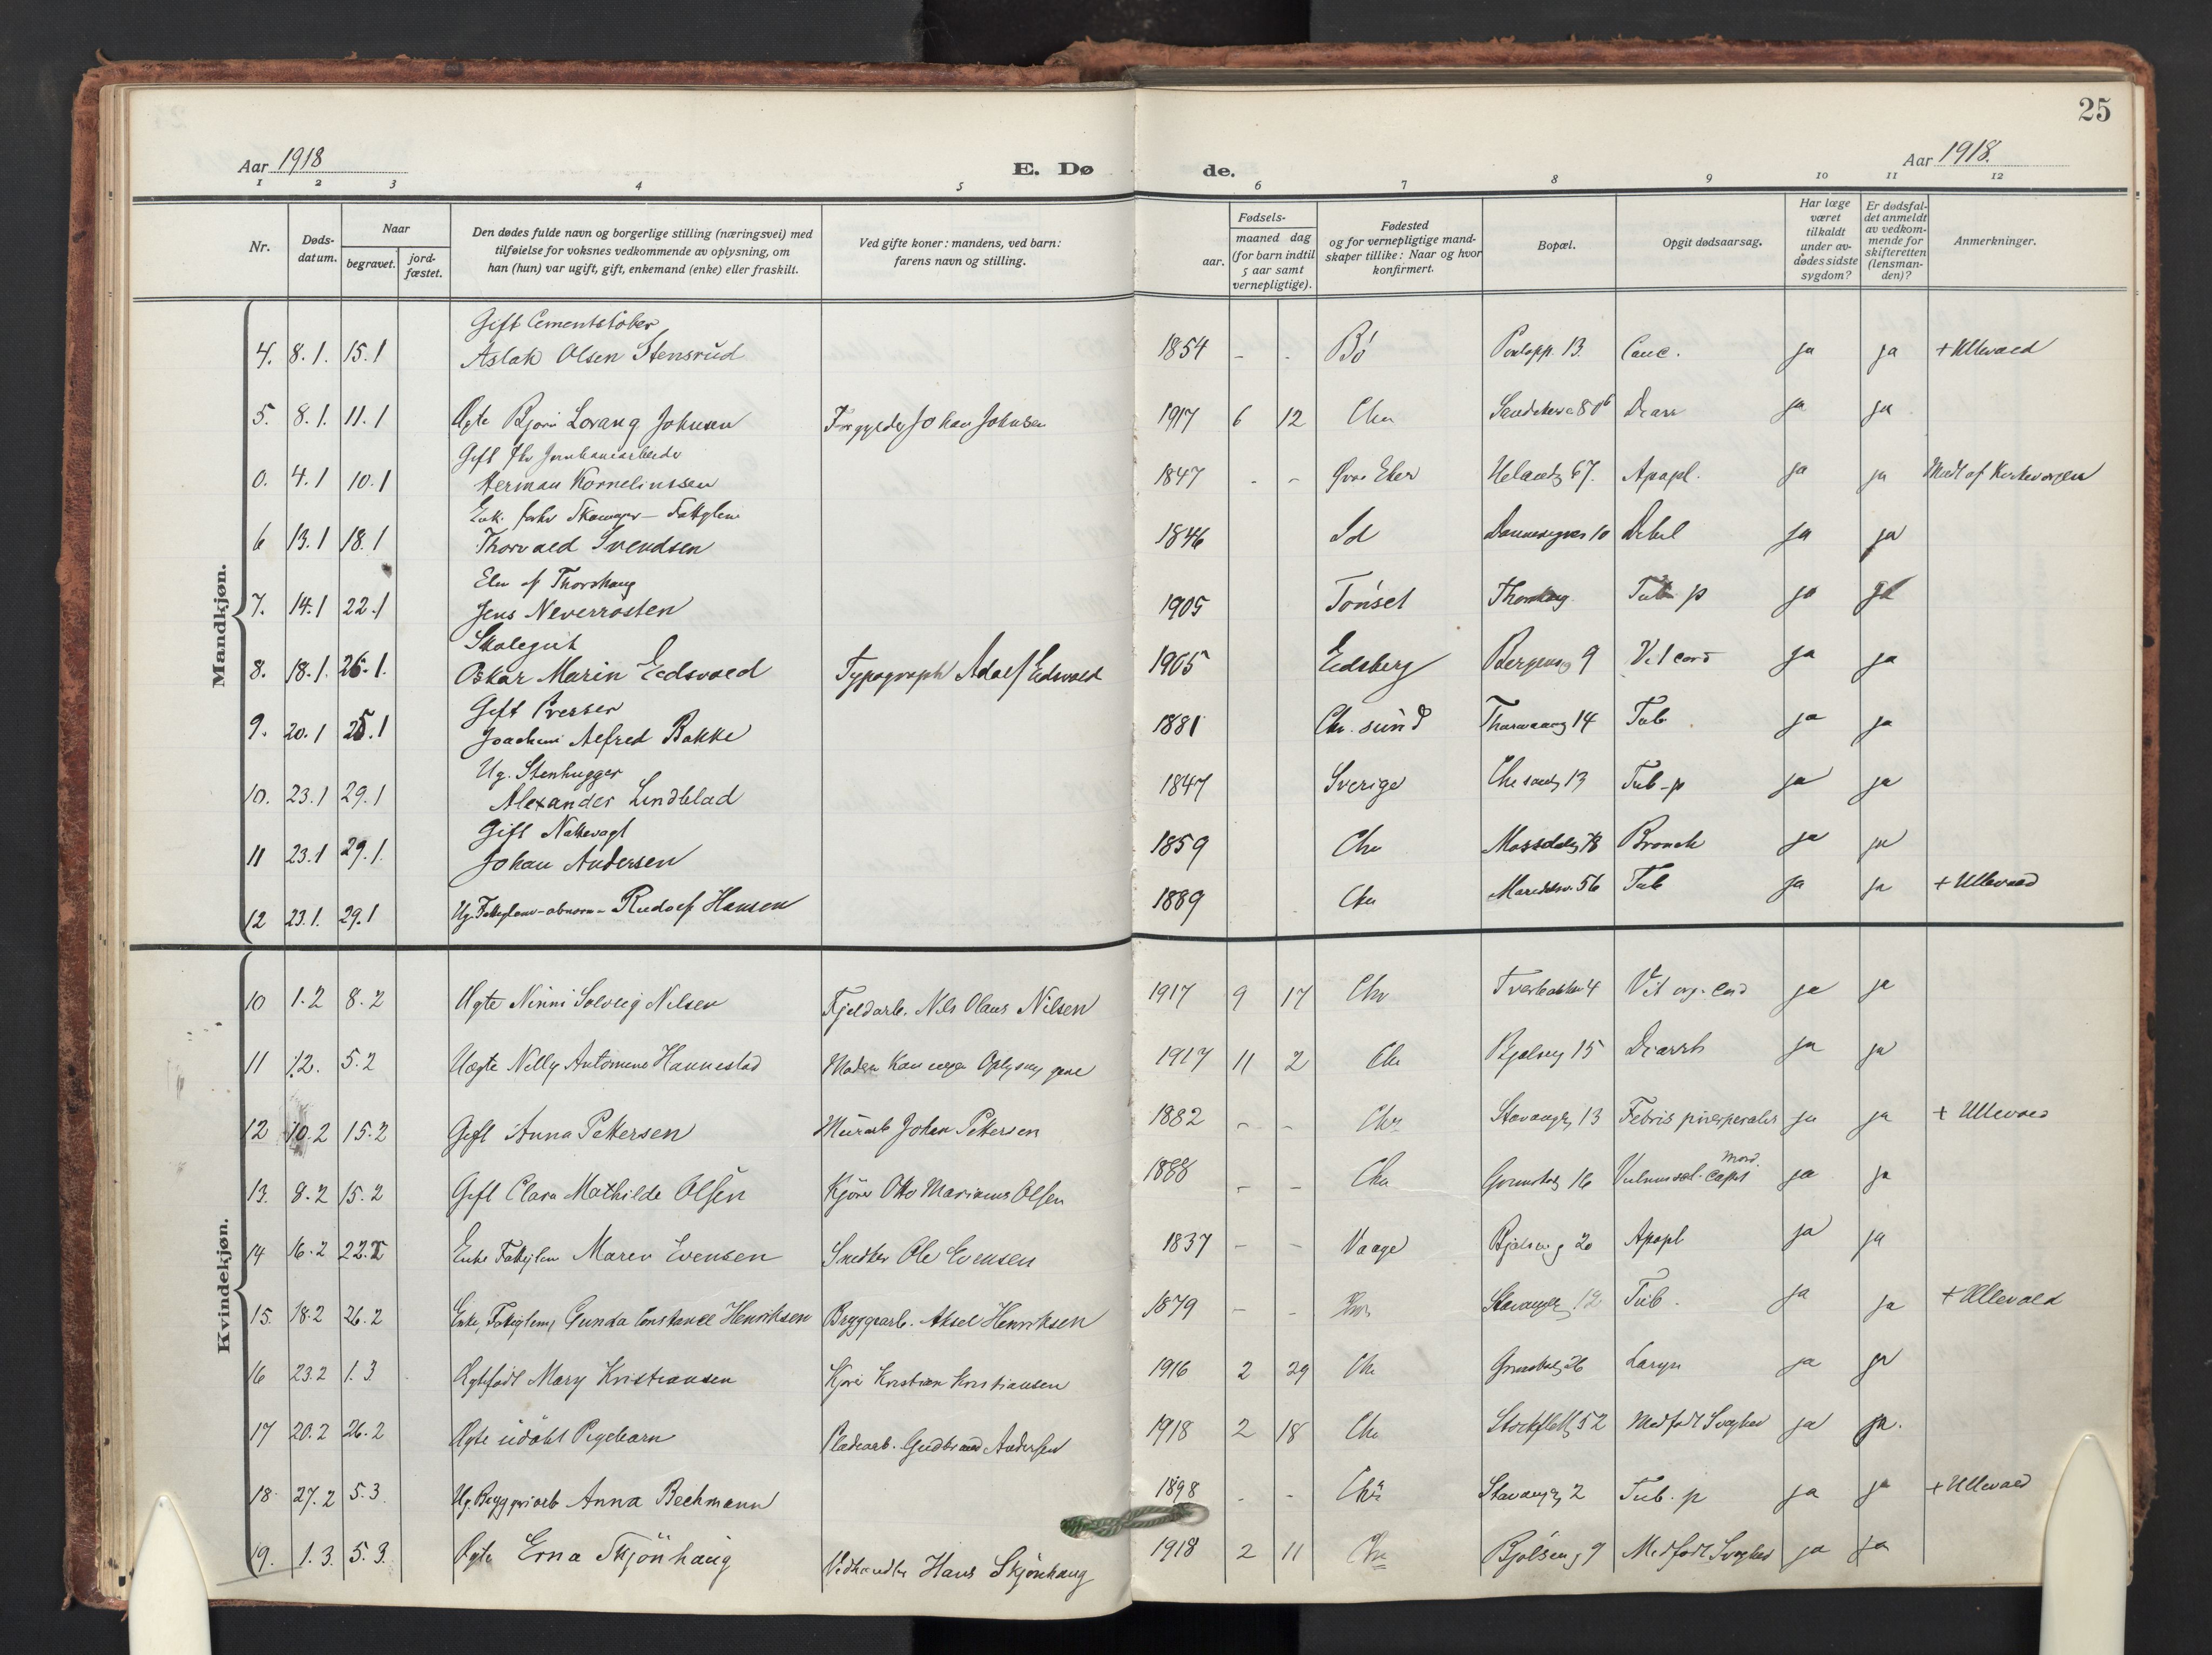 25
Aar 1918 E. Dø de. Aar 1918.
1 2 3 4 5 6 7 8 9 10 11 12
Nr.
Døds-
datum.
Naar
begravet.
jord-
fæstet.
Den dødes fulde navn og borgerlige stilling (næringsvei) med
tilføielse for voksnes vedkommende av oplysning, om
han (hun) var ugift, gift, enkemand (enke) eller fraskilt.
Ved gifte koner: mandens, ved barn:
farens navn og stilling.
Fødsels-
aar.
maaned dag
(for barn indtil
5 aar samt
vernepligtige).
Fødested
og for vernepligtige mand-
skaper tillike: Naar og hvor
konfirmert.
Bopæl.
Opgit dødsaarsag.
Har læge
været
tilkaldt
under av-
dødes sidste
sygdom?
Er dødsfal-
det anmeldt
av vedkom-
mende for
skifteretten
(lensman-
den)?
Anmerkninger.
Mandkjøn.
Gift Cementstøber
4. 8.1. 15.1 Aslak Olsen Stensrud 1854 - - Bø 13. Canc. ja ja + Ullevaal
5. 8.1. 11.1 Ægte Bjørn Lorang Johnsen Forgylder Johan Johnsen 1917 6 12 Chra 80b Diarr ja ja
Gift fhv Jernbanearbeider
0. 4.1 10.1 Herman Kornelinssen 1847 - - Øvre Eker 67. Apopl. ja ja Medt af Kirkevergen
Enk. forhv Skomager - Fattiglem
6 13.1 18.1 Thorvald Svendsen 1846 Id 10 Debil ja ja
Elev af Thorshaug
7. 14.1 22.1 Jens Neverrosten 1905 Tönset Thorshaug Tub p ja ja
Skolegut
8. 18.1. 26.1. Oskar Marin Eidsvold Typograph Adolf Eidsvold 1905 Eidsberg Bergensg 9 Vit cord ja ja
Gift Presser
9. 20.1 25.1 Joachim Alfred Bakke 1881 Chr. sund 14 Tub ja ja
Ug. Stenhugger
10. 23.1 29.1 Alexander Lindblad 1847 Sverige 13 Tub-p ja ja
Gift Nattevagt
11 23.1 29.1. Johan Andersen 1859 Chra Bronch ja ja
12 23.1. 29.1 Ug. Fattiglem - abnorm - Rudolf Hansen 1889 Chra Maridalsv. 56 Tub ja ja + Ullevaal
Kvindekjøn.
10 1.2 8.2 Ægte Ninni Solveig Nilsen Fjeldarb. Nils Olaus Nilsen 1917 9 17 Chra Tverbakken 4 Vit org. Cord ja ja
11 1.2. 5.2 Uægte Nelly Antonine Hannestad Moderen kan ingen Oplysning give 1917 11 2 Chra Bjølseng 15 Diarrh ja ja
12 10.2 15.2 Gift Anna Pettersen Murarb Johan Pettersen 1882 - - Chra Stavangerg 13 Febris puerperalis ja ja + Ullevaal
13. 8.2 15.2 Gift Clara Mathilde Olsen Kjører Otto Marinius Olsen 1888 - - Chra 16 Vulnus scl. capit Mord. ja ja
14 16.2 22.2 Enke Fattiglem Maren Evensen Snedker Ole Evensen 1837 - - Vaage Bjølseng 20 Apopl ja ja
15. 18.2 26.2 Enke, Fattiglem, Gunda Constance Henriksen Bryggearb. Aksel Henriksen 1879 - - Chra Stavangerg 12 Tub. ja ja + Ullevaal
16 23.2 1.3 Ægtefødt Mary Kristiansen Kjører Kristian Kristiansen 1916 2 29 Chra 26 Laryn ja ja
17 20.2 26.2 Ægte udøbt Pigebarn Pladearb. Gudbrand Andersen 1918 2 18 Chra Stockflethg 52 Medfødt Svaghed ja ja.
18. 27.2 5.3. Ug. Bryggeriarb Anna Bechmann 1898 - - Chra Stavangerg 2 Tub. p ja ja + Ullevaal
19. 1.3. 5.3. Ægte Erna Skjönhaug Vedhandler Hans Skjönhaug 1918 2 11 Chra Bjølseng 9 Medfødt Svaghed ja ja